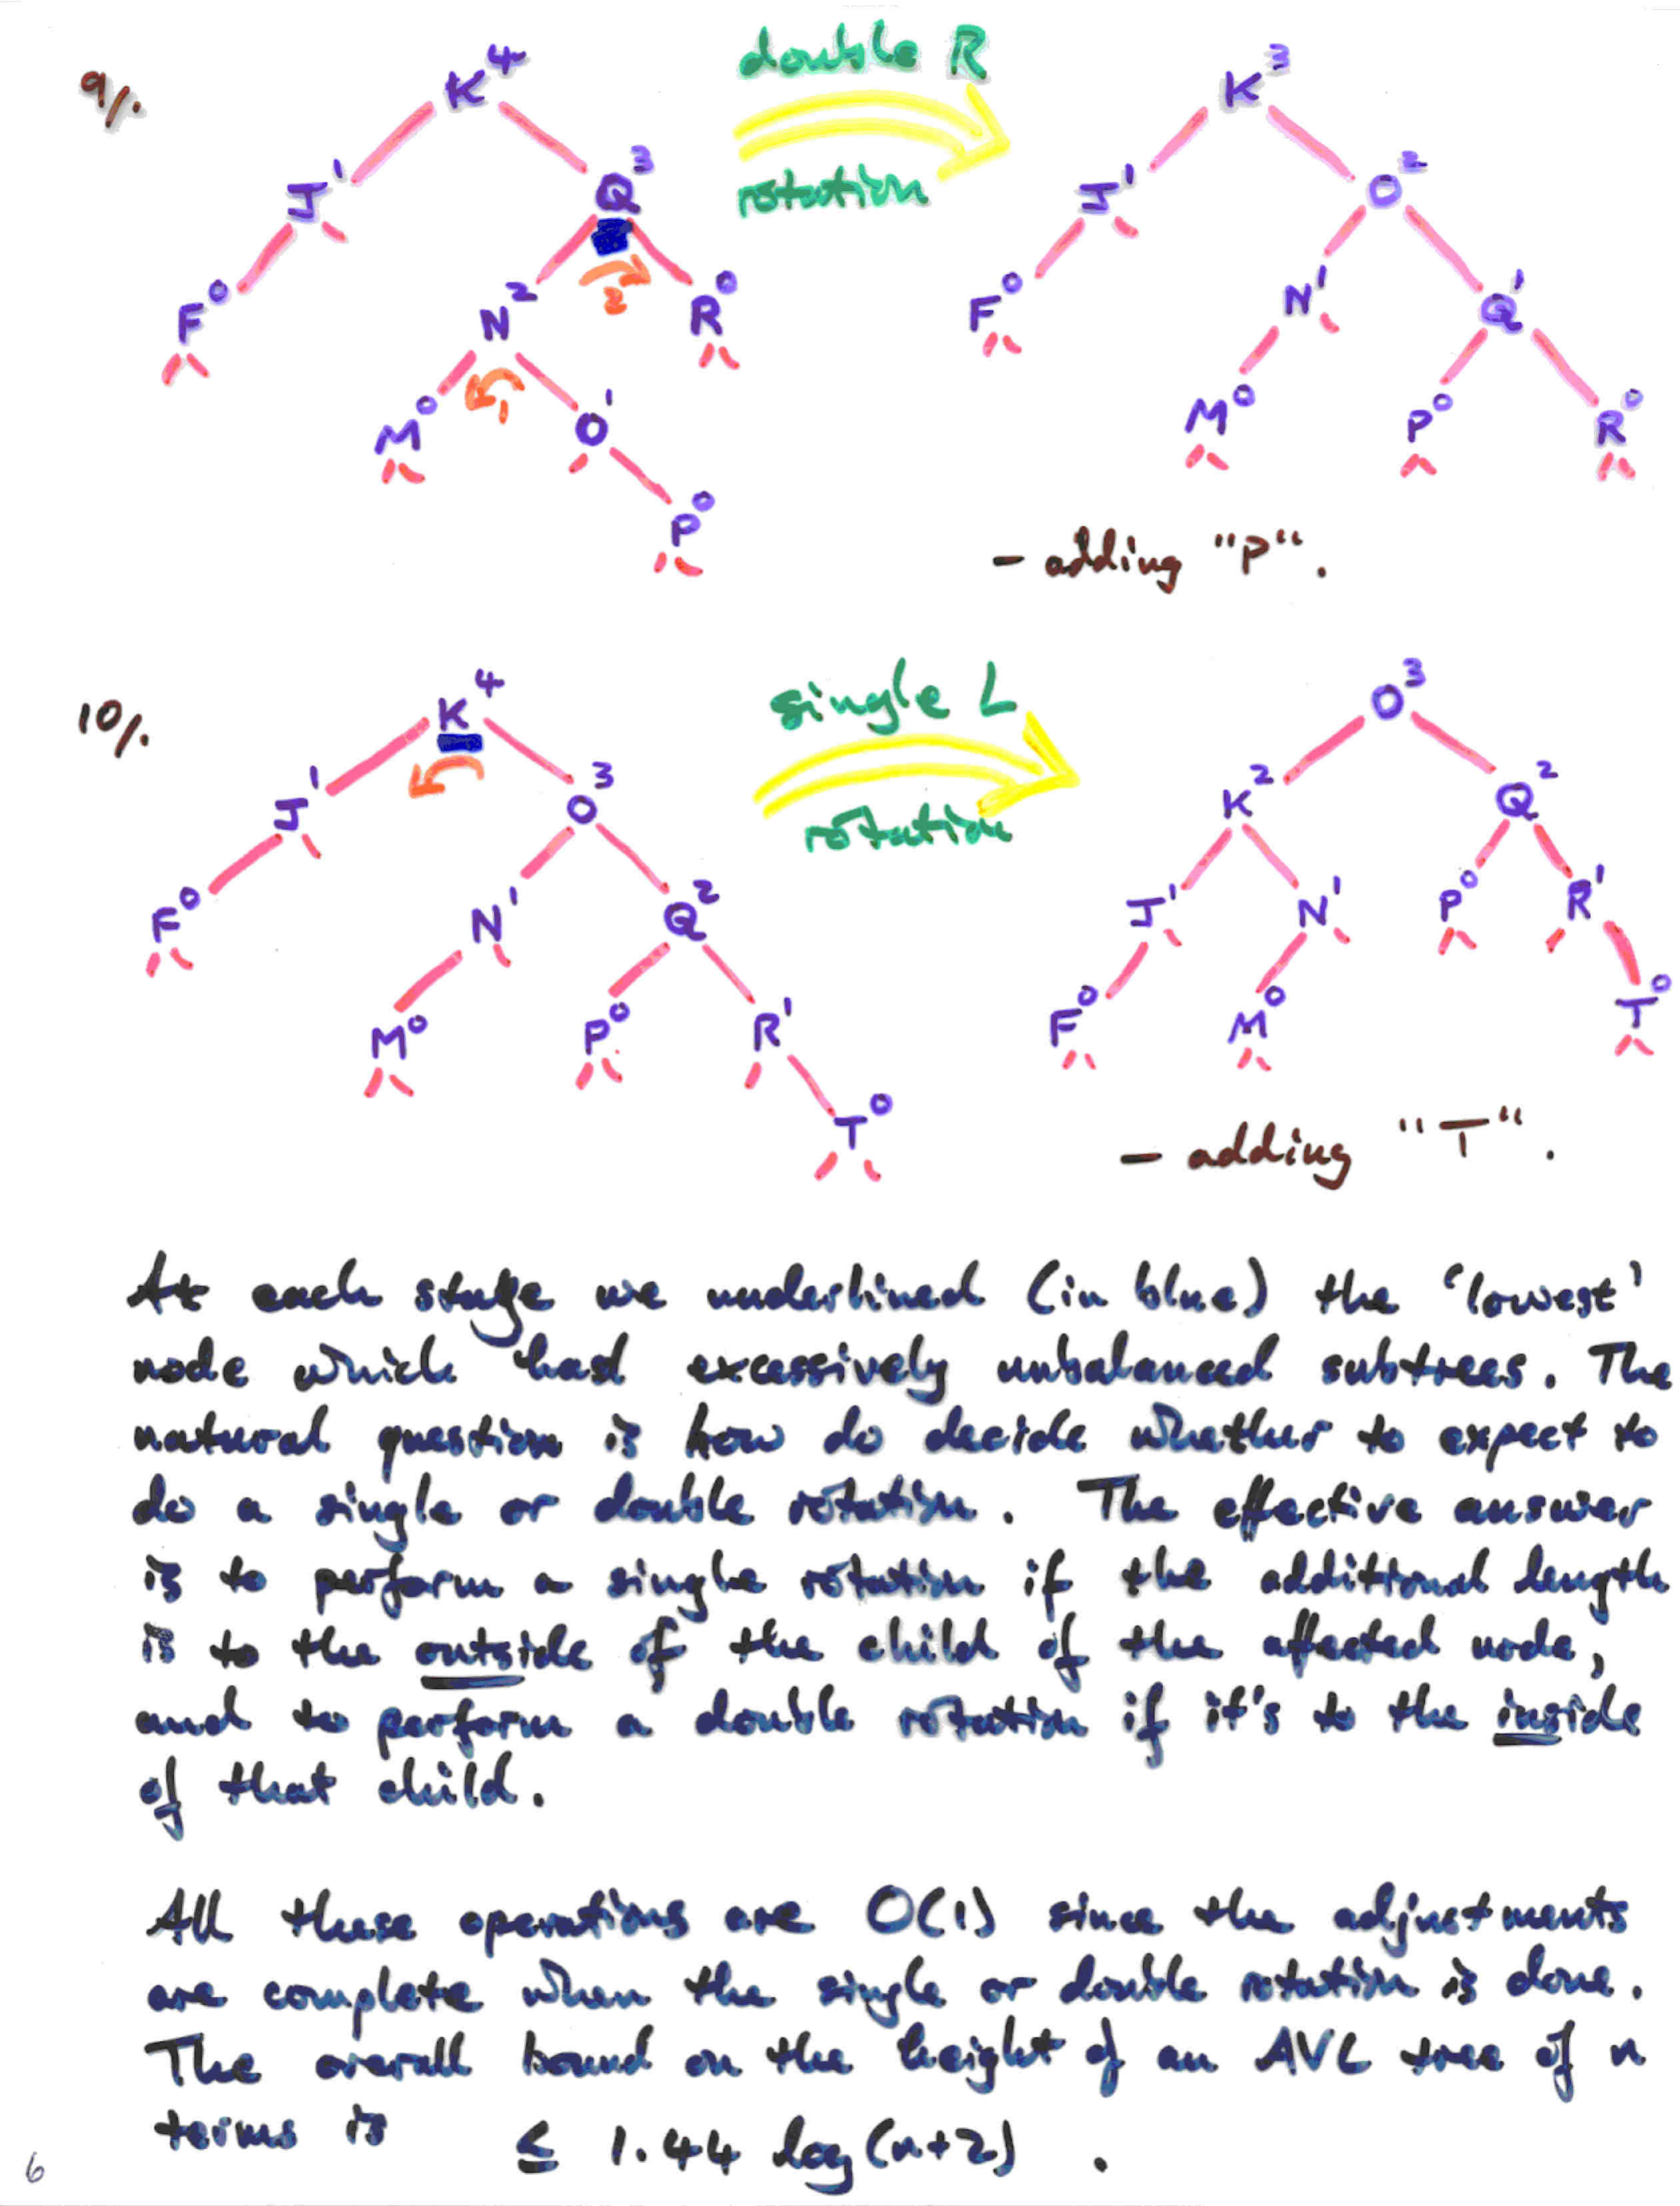 9/.
double R
rotation
K⁴
J¹ Q³
F⁰ N² 2 R⁰
M⁰ 1 O¹
P⁰
K³
J¹ O²
F⁰ N¹ Q¹
M⁰ P⁰ R⁰
– adding "P".
10/.
single L
rotation
K⁴
J¹ O³
F⁰ N¹ Q²
M⁰ P⁰ R¹
T⁰
O³
K² Q²
J¹ N¹ P⁰ R¹
F⁰ M⁰ T⁰
– adding "T".
At each stage we underlined (in blue) the 'lowest'
node which had excessively unbalanced subtrees. The
natural question is how do decide whether to expect to
do a single or double rotation. The effective answer
is to perform a single rotation if the additional length
is to the outside of the child of the affected node,
and to perform a double rotation if it's to the inside
of that child.
All these operations are O(1) since the adjustments
are complete when the single or double rotation is done.
The overall bound on the height of an AVL tree of n
terms is ≤ 1.44 log(n+2) .
6